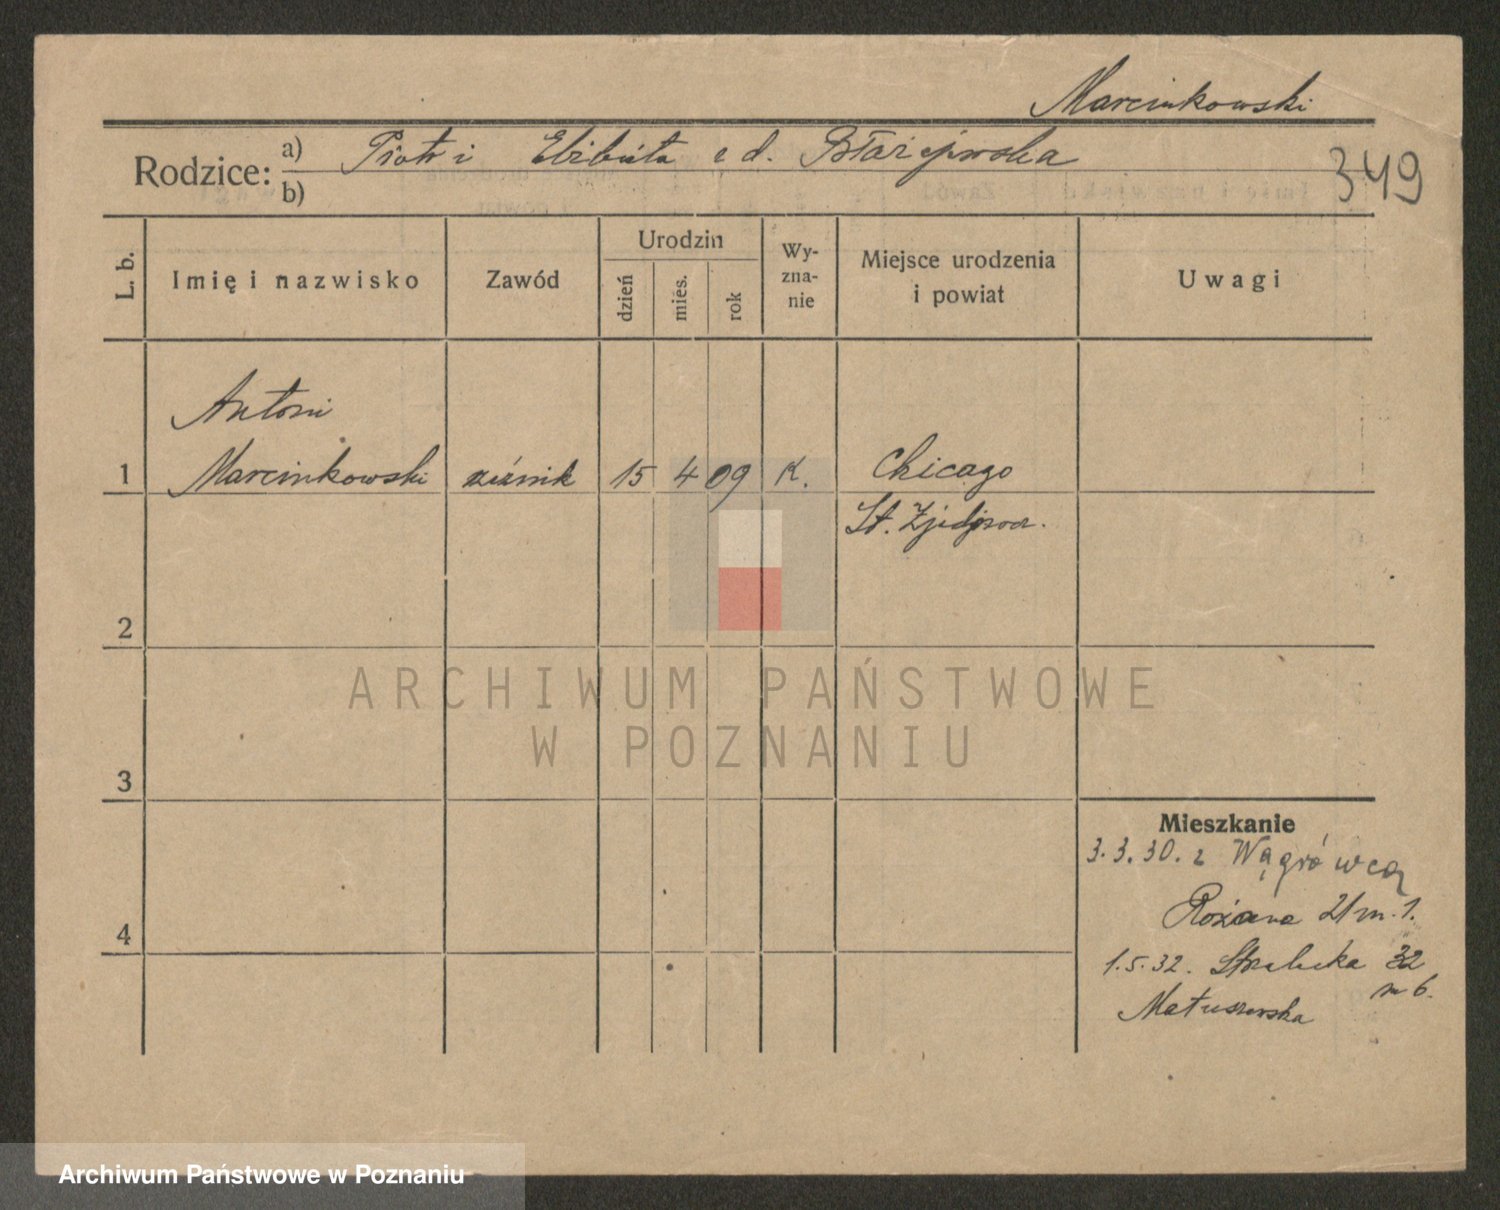 Marcinkowski
Rodzice: a) Piotr i Elżbieta z d. Błażejewska
b)
349
L. b.
Imię i nazwisko
Zawód
Urodzin
dzień
mies.
rok
Wy-
zna-
nie
Miejsce urodzenia
i powiat
Uwagi
Antoni
1 Marcinkowski rzeźnik 15 4 09 K. Chicago
St. Zjednocz.
2
3
4
Mieszkanie
3.3.30. z Wągrówca
Różana 21 m. 1.
1.5.32. Strzelecka 32
m 6.
Matuszewska
ARCHIWUM PAŃSTWOWE
W POZNANIU
Archiwum Państwowe w Poznaniu